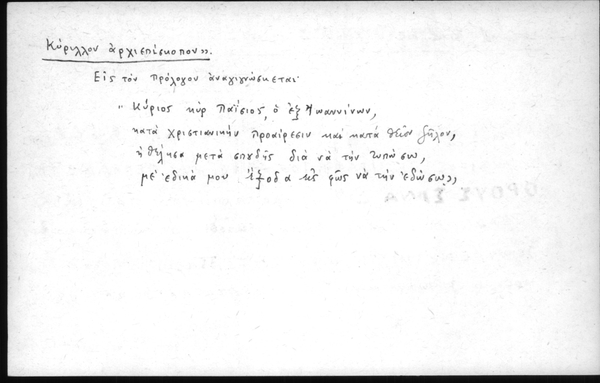 Κύριλλον ἀρχιεπίσκοπον».
Εἰς τὸν πρόλογον ἀναγιγνώσκεται·
« Κύριος κὺρ Παΐσιος, ὁ ἐξ Ἰωαννίνων,
κατὰ χριστιανικὴν προαίρεσιν καὶ κατὰ θεῖον ζῆλον,
ἠθέλησα μετὰ σπουδῆς διὰ νὰ τὴν τυπώσω,
μὲ ἐδικά μου ἔξοδα κ' φῶς νὰ τὴν ἐδώσω»,